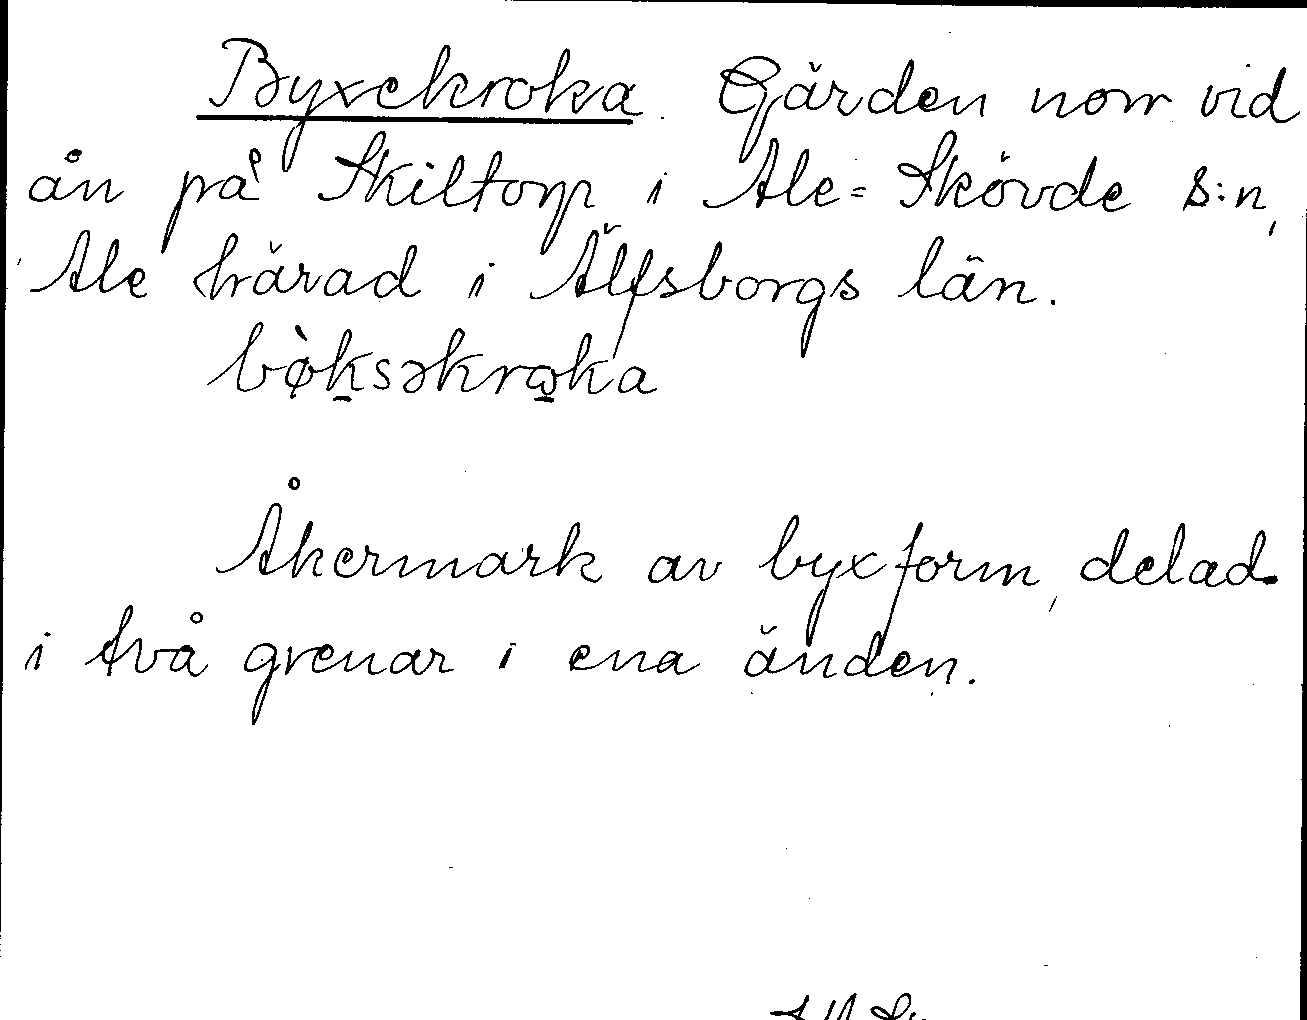 Byxekroka. Gärden norr vid
ån på Skiltorp i Ale=Skövde s:n,
Ale härad i Älfsborgs län.
bø̀ksəkroka
Åkermark av byxform, delad
i två grenar i ena änden.